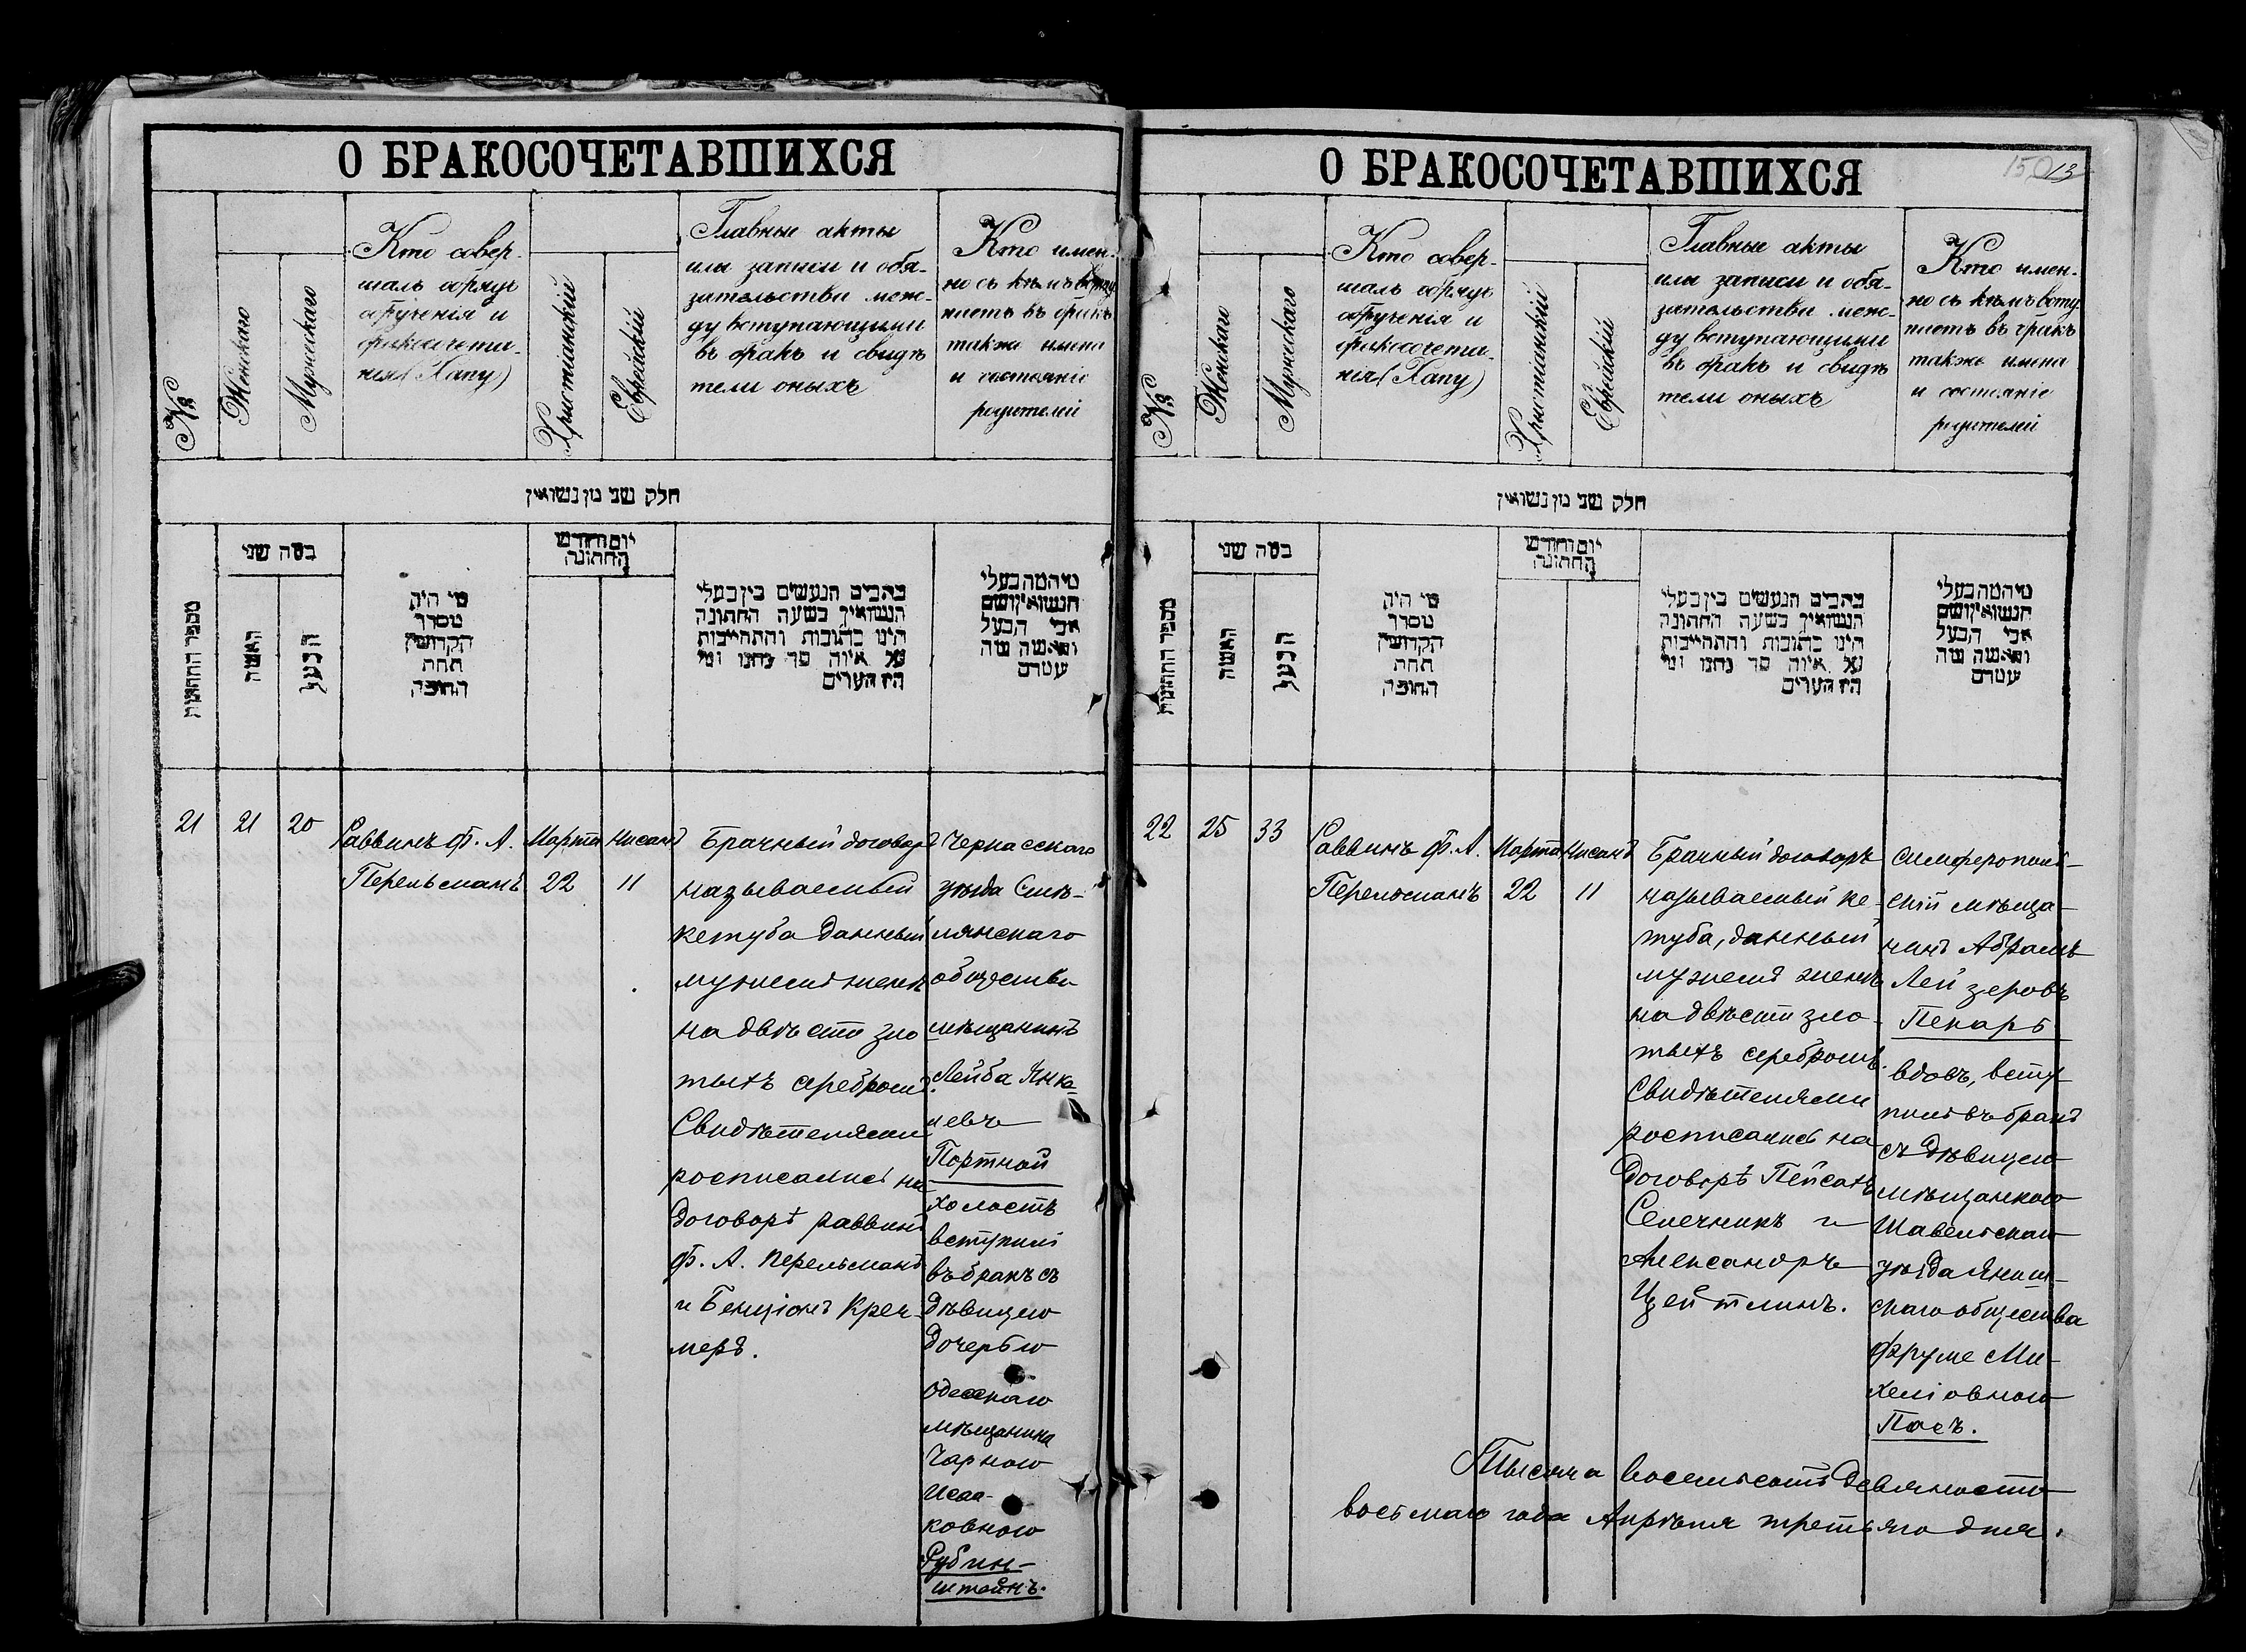 О БРАКОСОЧЕТАВШИХСЯ
№
Женскаго
Мужескаго
Кто совер-
шалъ обрядъ
обрученія и
бракосочета-
нія (Хапу)
Христіанскій
Еврейскій
Главные акты
или записи и обя-
зательства меж-
ду вступающими
въ бракъ и свидѣ
тели оныхъ
Кто имен-
но съ кѣмъ всту
паетъ въ бракъ
также имена
и состояніе
родителей
חלק שני מן נשואין
מספר החתונות
בסה שני
האשה
הבעל
מי היה
מסדר
הקדושין
תחת
החופה
יום וחודש
החתונה
כתבים הנעשים בין בעלי
הנשואין בשעה החתונה
היינו כתובות והתחייבות
על איזה סך נתנו ומי
היו הערים
מיהמה בעלי
הנשואין ושם
אבי הבעל
והאשה מה
עטרם
21
21
20
Раввинъ Ф. А.
Перельманъ
Марта
22
Нисанъ
11
Брачный договоръ
называемый
кетуба данный
мужемъ женѣ
на двѣсти зло
тыхъ серебромъ.
Свидѣтелями
росписались на
договорѣ раввинъ
Ф. А. Перельманъ
и Бенціонъ Крей-
меръ.
Черкасскаго
уѣзда Смѣ-
лянскаго
общества
мѣщанинъ
Лейба Янке-
левъ
Портной
холостъ
вступилъ
въ бракъ съ
дѣвицею
дочерью
одесскаго
мѣщанина
Чарною
Исаа-
ковною
Рубин-
штейнъ.
О БРАКОСОЧЕТАВШИХСЯ
150 13
№
Женскаго
Мужескаго
Кто совер-
шалъ обрядъ
обрученія и
бракосочета-
нія (Хапу)
Христіанскій
Еврейскій
Главные акты
или записи и обя-
зательства меж-
ду вступающими
въ бракъ и свидѣ
тели оныхъ
Кто имен-
но съ кѣмъ всту
паетъ въ бракъ
также имена
и состояніе
родителей
חלק שני מן נשואין
מספר החתונות
בסה שני
האשה
הבעל
מי היה
מסדר
הקדושין
תחת
החופה
יום וחודש
החתונה
כתבים הנעשים בין בעלי
הנשואין בשעה החתונה
היינו כתובות והתחייבות
על איזה סך נתנו ומי
היו הערים
מיהמה בעלי
הנשואין ושם
אבי הבעל
והאשה מה
עטרם
22
25
33
Раввинъ Ф. А.
Перельманъ
Марта
22
Нисанъ
11
Брачный договоръ
называемый ке-
туба, данный
мужемъ женѣ
на двѣсти зло-
тыхъ серебромъ.
Свидѣтелями
росписались на
договорѣ Пейсахъ
Селечникъ и
Александръ
Цейтлинъ.
Симферополь-
скій мѣща-
нинъ Абрамъ
Лейзеровъ
Пекарь
вдовъ, всту
пилъ въ бракъ
съ дѣвицею
мѣщанкою
Шавельскаго
уѣзда Яниш-
скаго общества
Фруме Ми-
хеліовною
Пасъ.
Тысяча восемьсотъ девяносто
восьмаго года Апрѣля третьяго дня.